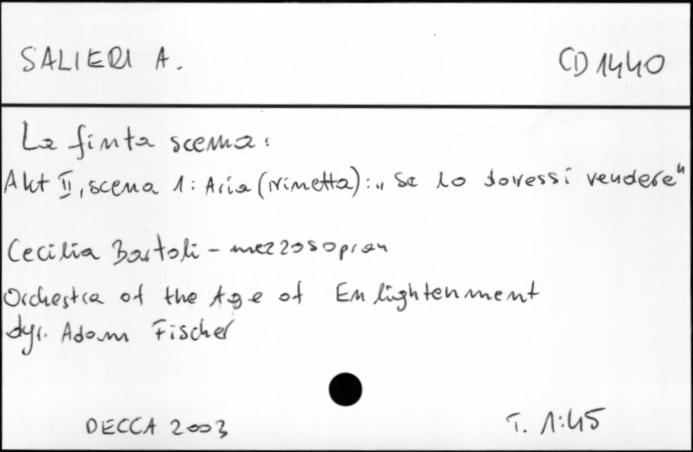 SALIERI A.
CD 1440
La finta scema:
Akt II, scena 1: Aria (Nimetta): „Se lo dovessi vendere"
Cecilia Bartoli - mezzosopran
Orchestra of the Age of Enlightenment
dyr. Adam Fischer
DECCA 2003
T. 1:45